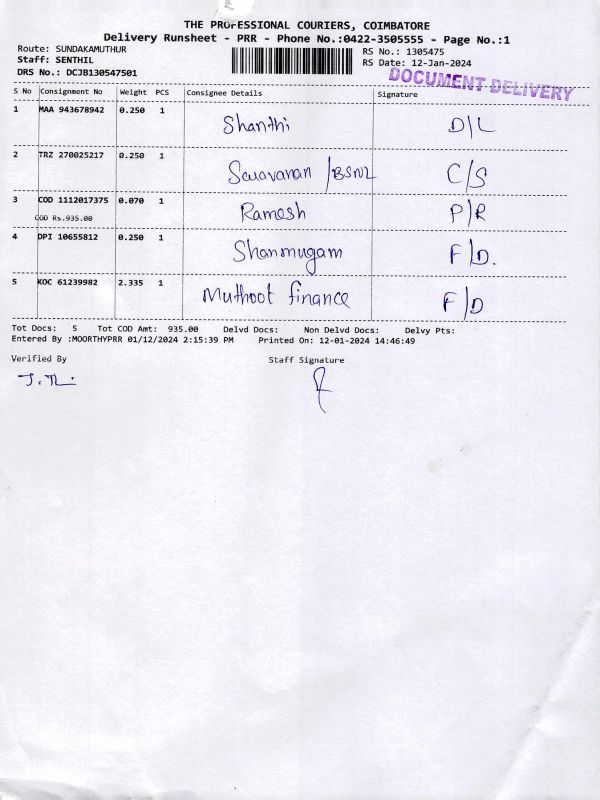 THE PROFESSIONAL COURIERS, COIMBATORE
Delivery Runsheet - PRR - Phone No.:0422-3505555 - Page No.:1
Route: SUNDAKAMUTHUR RS No.: 1305475
Staff: SENTHIL RS Date: 12-Jan-2024
DRS No.: DCJB130547501
DOCUMENT DELIVERY
S No Consignment No Weight PCS Consignee Details Signature
1 MAA 943678942 0.250 1 Shanthi D/L
2 TRZ 270025217 0.250 1 Saravanan /BSNL C/S
3 COD 1112017375 0.070 1 Ramesh P/R
COD Rs.935.00
4 DPI 10655812 0.250 1 Shanmugam F/D.
5 KOC 61239982 2.335 1 Muthoot finance F/D
Tot Docs: 5 Tot COD Amt: 935.00 Delvd Docs: Non Delvd Docs: Delvy Pts:
Entered By :MOORTHYPRR 01/12/2024 2:15:39 PM Printed On: 12-01-2024 14:46:49
Verified By Staff Signature